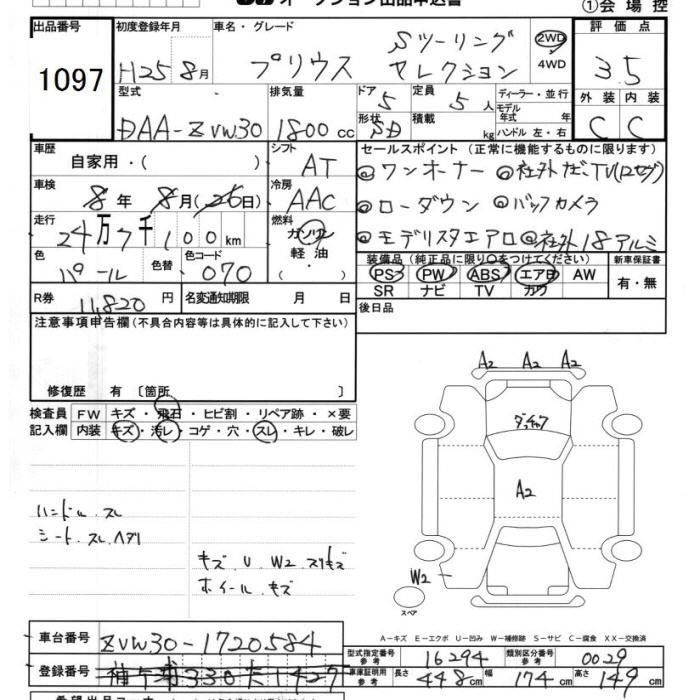 ①会場控
出品番号 1097
初度登録年月 H25 8月
車名・グレード プリウス Sツーリング セレクション
2WD
4WD
評価点 3.5
外装 C 内装 C
型式 DAA-ZVW30
排気量 1800cc
ドア 5 形状 5D
定員 5人 積載 kg
ディーラー・並行
モデル年式 年
ハンドル 左・右
車歴 自家用・( )
シフト AT
車検 8年 8月(26日)
冷房 AAC
走行 24万7千100km
燃料 ガソリン 軽油
色 パール 色替 色コード 070
R券 11,820円 名変通知期限 月 日
セールスポイント (正常に機能するものに限ります)
◎ワンオーナー ◎社外ナビ、TV(ワンセグ)
◎ローダウン ◎バックカメラ
◎モデリスタエアロ ◎社外18アルミ
装備品(純正品に限り○をつけてください)
PS PW ABS エアB AW
SR ナビ TV カワ
新車保証書 有・無
後日品
注意事項申告欄(不具合内容等は具体的に記入して下さい)
修復歴 有〔箇所 〕
検査員記入欄
FW キズ・飛石・ヒビ割・リペア跡・×要
内装 キズ・汚レ・コゲ・穴・スレ・キレ・破レ
ハンドル スレ
シート スレ ヘタリ
キズ U W2 スリキズ
ホイール キズ
A2 A2 A2
A2
W2
スペア
A-キズ E-エクボ U-凹み W-補修跡 S-サビ C-腐食 XX-交換済
車台番号 ZVW30-1720584
登録番号 330 1427
型式指定番号 参考 16294 類別区分番号 参考 0029
車庫証明用 参考 長さ 448cm 幅 174cm 高さ 149cm